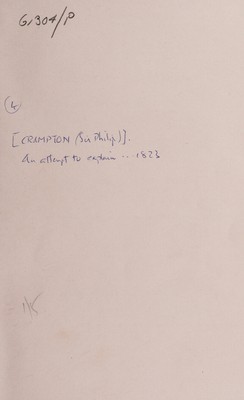 G.304/P
4
[CRAMPTON (Sir Philip)].
An attempt to explain .. 1823